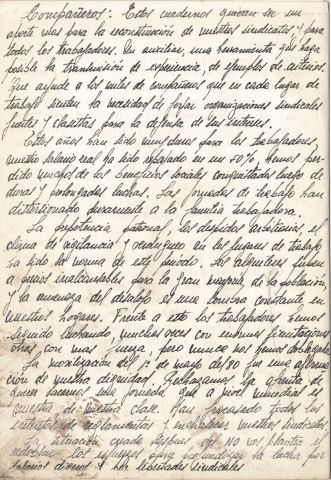 Compañeros: Estos cuadernos quieren ser un
aporte más para la reconstitución de nuestros sindicatos y para
todos los trabajadores. Un auxiliar, una herramienta que haga
posible la transmisión de experiencia, de ejemplos de criterios.
Que ayude a los miles de compañeros que en cada lugar de
trabajo sienten la necesidad de forjar organizaciones sindicales
fuertes y clasistas para la defensa de sus intereses.
Estos años han sido muy duros para los trabajadores,
nuestro salario real ha sido rebajado en un 40%. Hemos per-
dido muchos de los beneficios sociales conquistados luego de
duras y prolongadas luchas. Las jornadas de trabajo han
distorsionado duramente a la familia trabajadora.
La prepotencia patronal, los despidos arbitrarios, el
clima de vigilancia y verdugueo en los lugares de trabajo
ha sido la norma de este período. Los alquileres suben
a precios inalcanzables para la gran mayoría de la población,
y la amenaza del desalojo es una sombra constante en
nuestros hogares. Frente a esto los trabajadores hemos
seguido luchando, muchas veces con enormes limitaciones
otras, con más fuerza, pero nunca nos hemos doblegado.
La movilización del 1º de mayo del 80 fue una afirma-
ción de nuestra dignidad. Rechazamos la afrenta de
querer sacarnos esta jornada que a nivel mundial es
muestra de nuestra clase. Han fracasado todos los
intentos de reglamentar y enchalecar nuestros sindicatos.
La situación creada después del NO nos plantea el
redoblar los esfuerzos para profundizar la lucha por
salarios dignos y por libertades sindicales